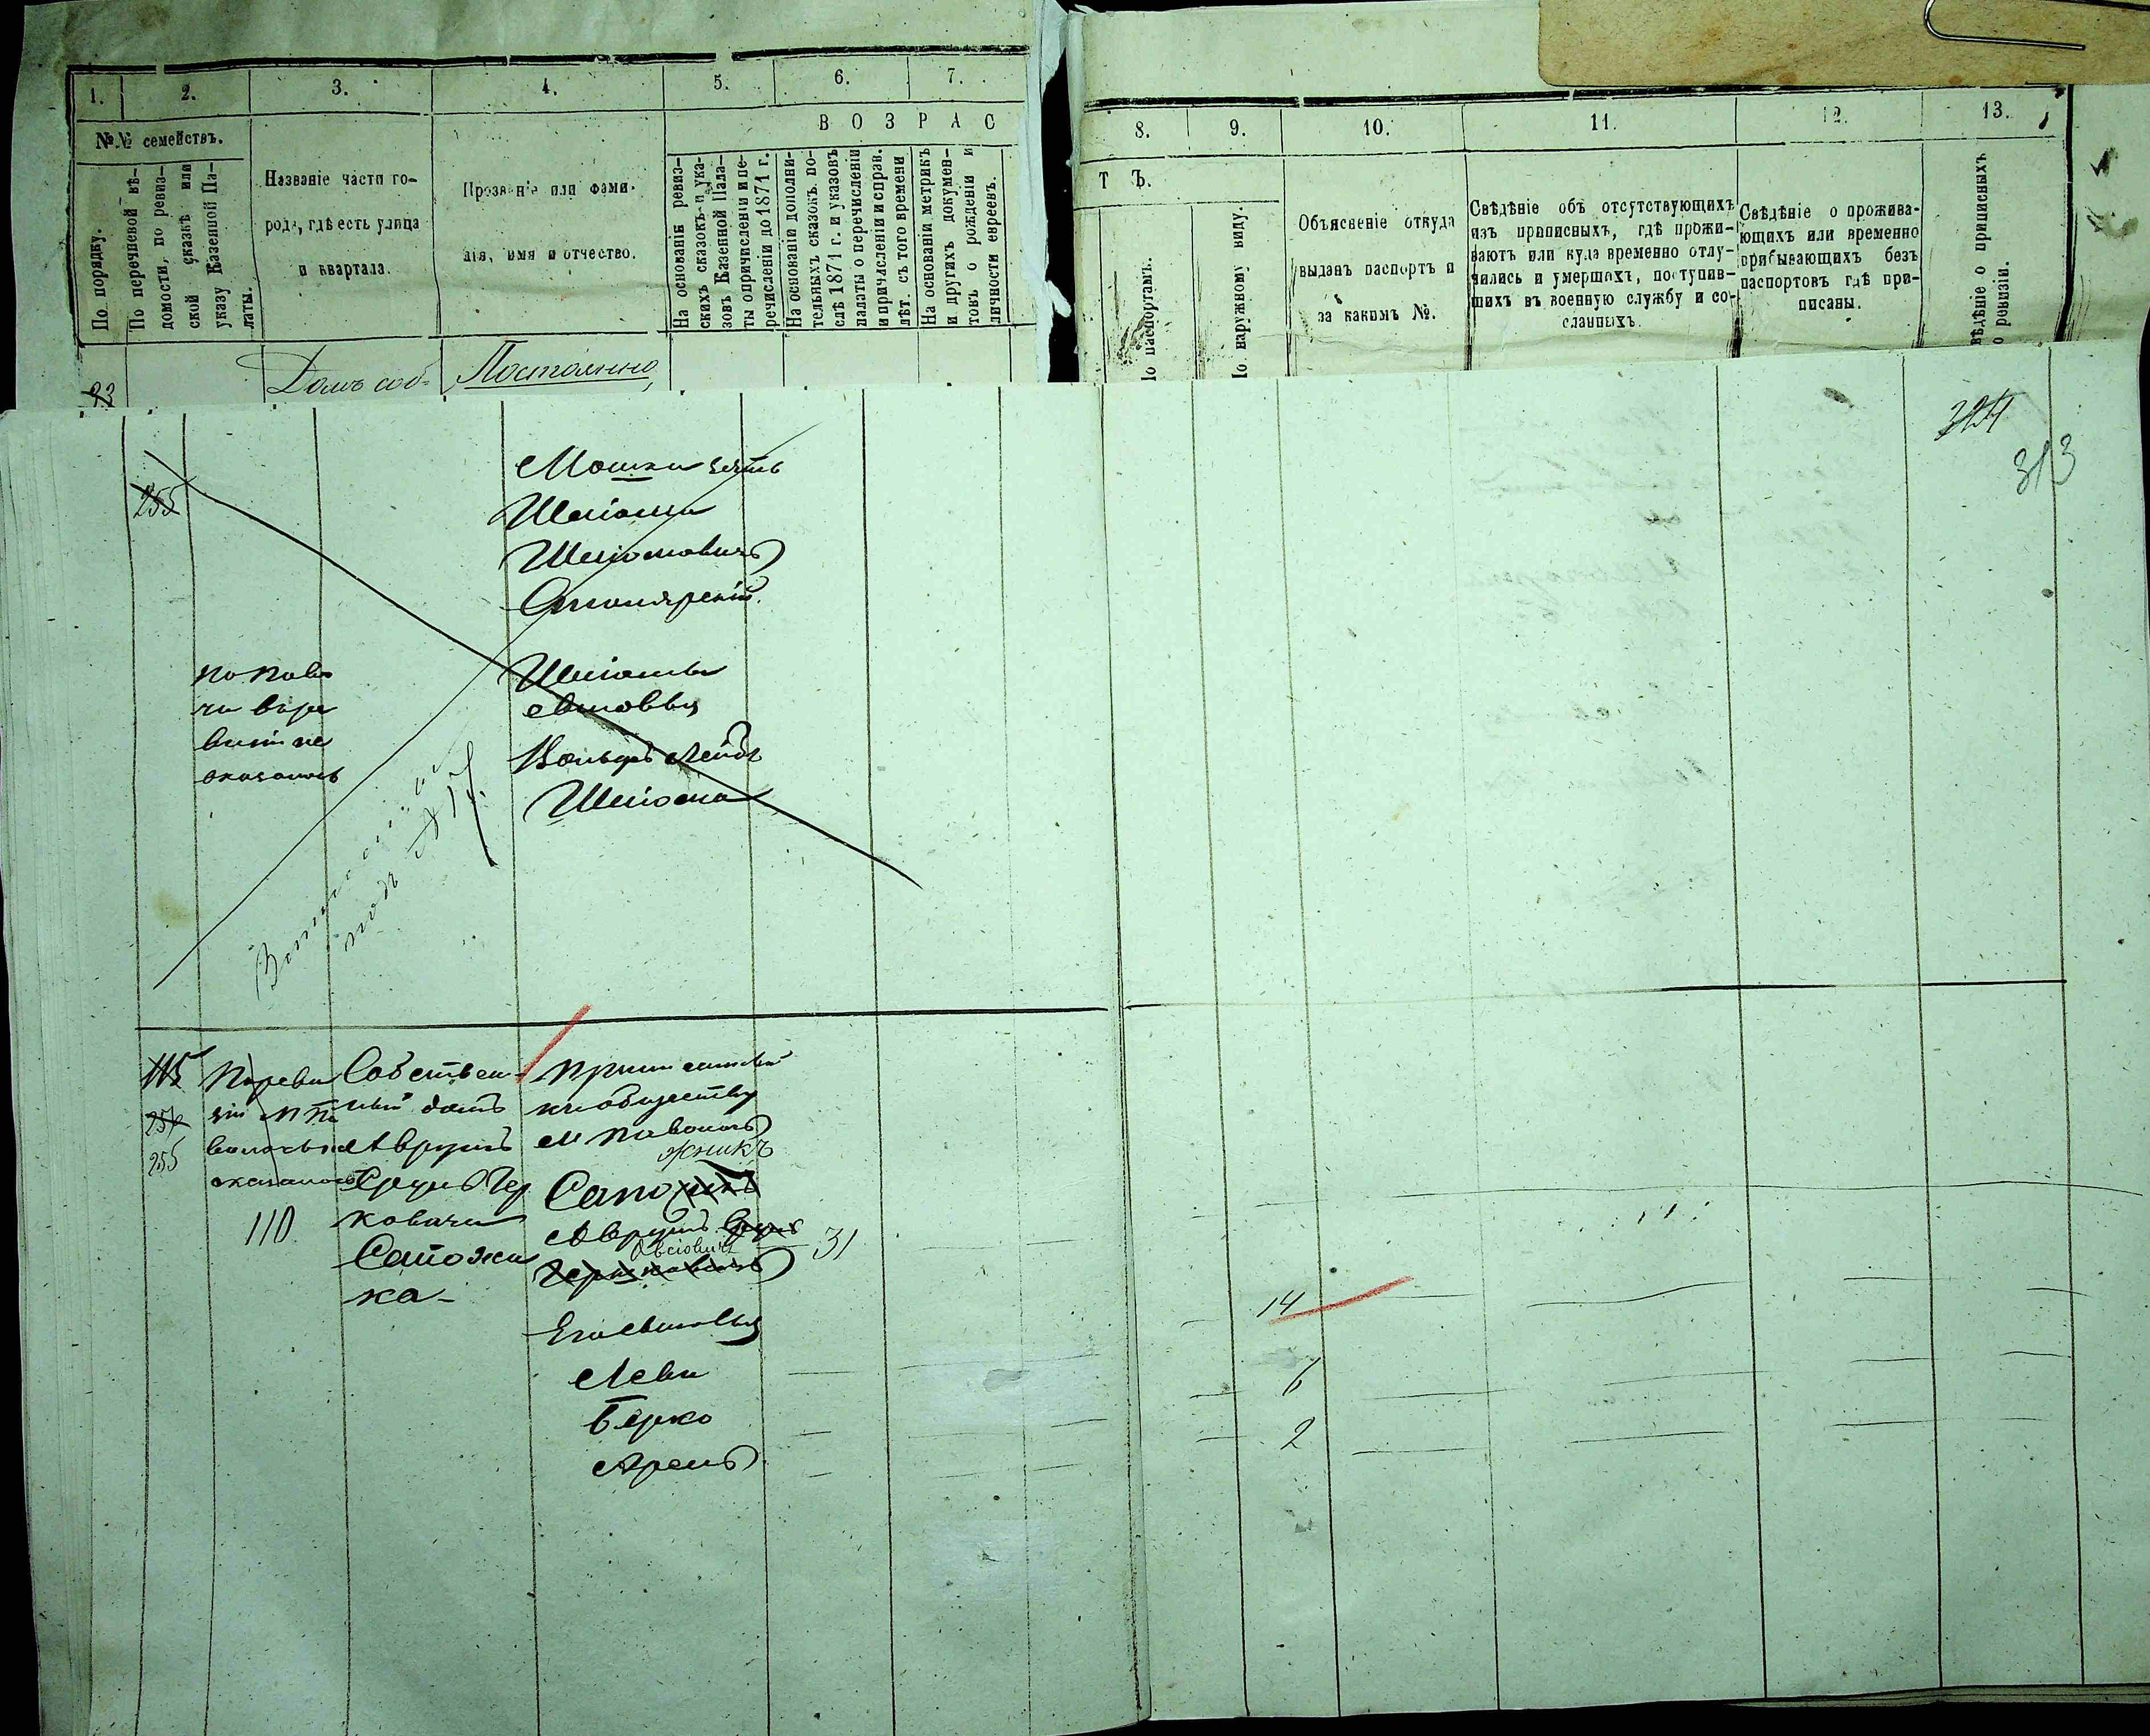 1. 2. 3. 4. 5. 6. 7.
8. 9. 10. 11. 12. 13.
№№ семействъ.
По порядку.
По перечневой вѣ-
домости, по ревиз-
ской сказкѣ или
указу Казенной Па-
латы.
Названіе части го-
рода, гдѣ есть улица
и квартала.
Прозваніе или фами-
лія, имя и отчество.
ВОЗРАС
На основаніи ревиз-
скихъ сказокъ и ука-
зовъ Казенной Пала-
ты о причисленіи и пе-
речисленіи до 1871 г.
На основаніи дополни-
тельныхъ сказокъ по-
слѣ 1871 г. и указовъ
палаты о перечисленіи
и причисленіи и справ.
лѣт. съ того времени
На основаніи метрикъ
и другихъ докумен-
товъ о рожденіи и
личности евреевъ.
ТЪ.
По паспортамъ.
По наружному виду.
Объясненіе откуда
выданъ паспортъ и
за какимъ №.
Свѣдѣніе объ отсутствующихъ
изъ приписныхъ, гдѣ прожи-
ваютъ или куда временно отлу-
чились и умершихъ, поступив-
шихъ въ военную службу и со-
сланныхъ.
Свѣдѣніе о прожива-
ющихъ или временно
прибывающихъ безъ
паспортовъ гдѣ при-
писаны.
вѣдѣніе о приписныхъ
о ревизіи.
23
Домъ соб-
Постоянно
324
313
255
Мошка зять
Шліома
Шліомовичъ
Столярскій.
Шліомы
сыновья
Вольфъ Лейба
Шліома
не
оказалось
подъ
115
254
255
оказалось
110
Собствен-
ный домъ
Аврумъ
Сруль Гер
ковичи
Сапожни
ка-
Приписаный
къ обществу
м Паволочъ
жникъ
Сапо
Аврумъ Сруль
Овсіовичъ
Гершковичъ
31
Его сыновья
Леви
Берко
Аренъ
14
6
2